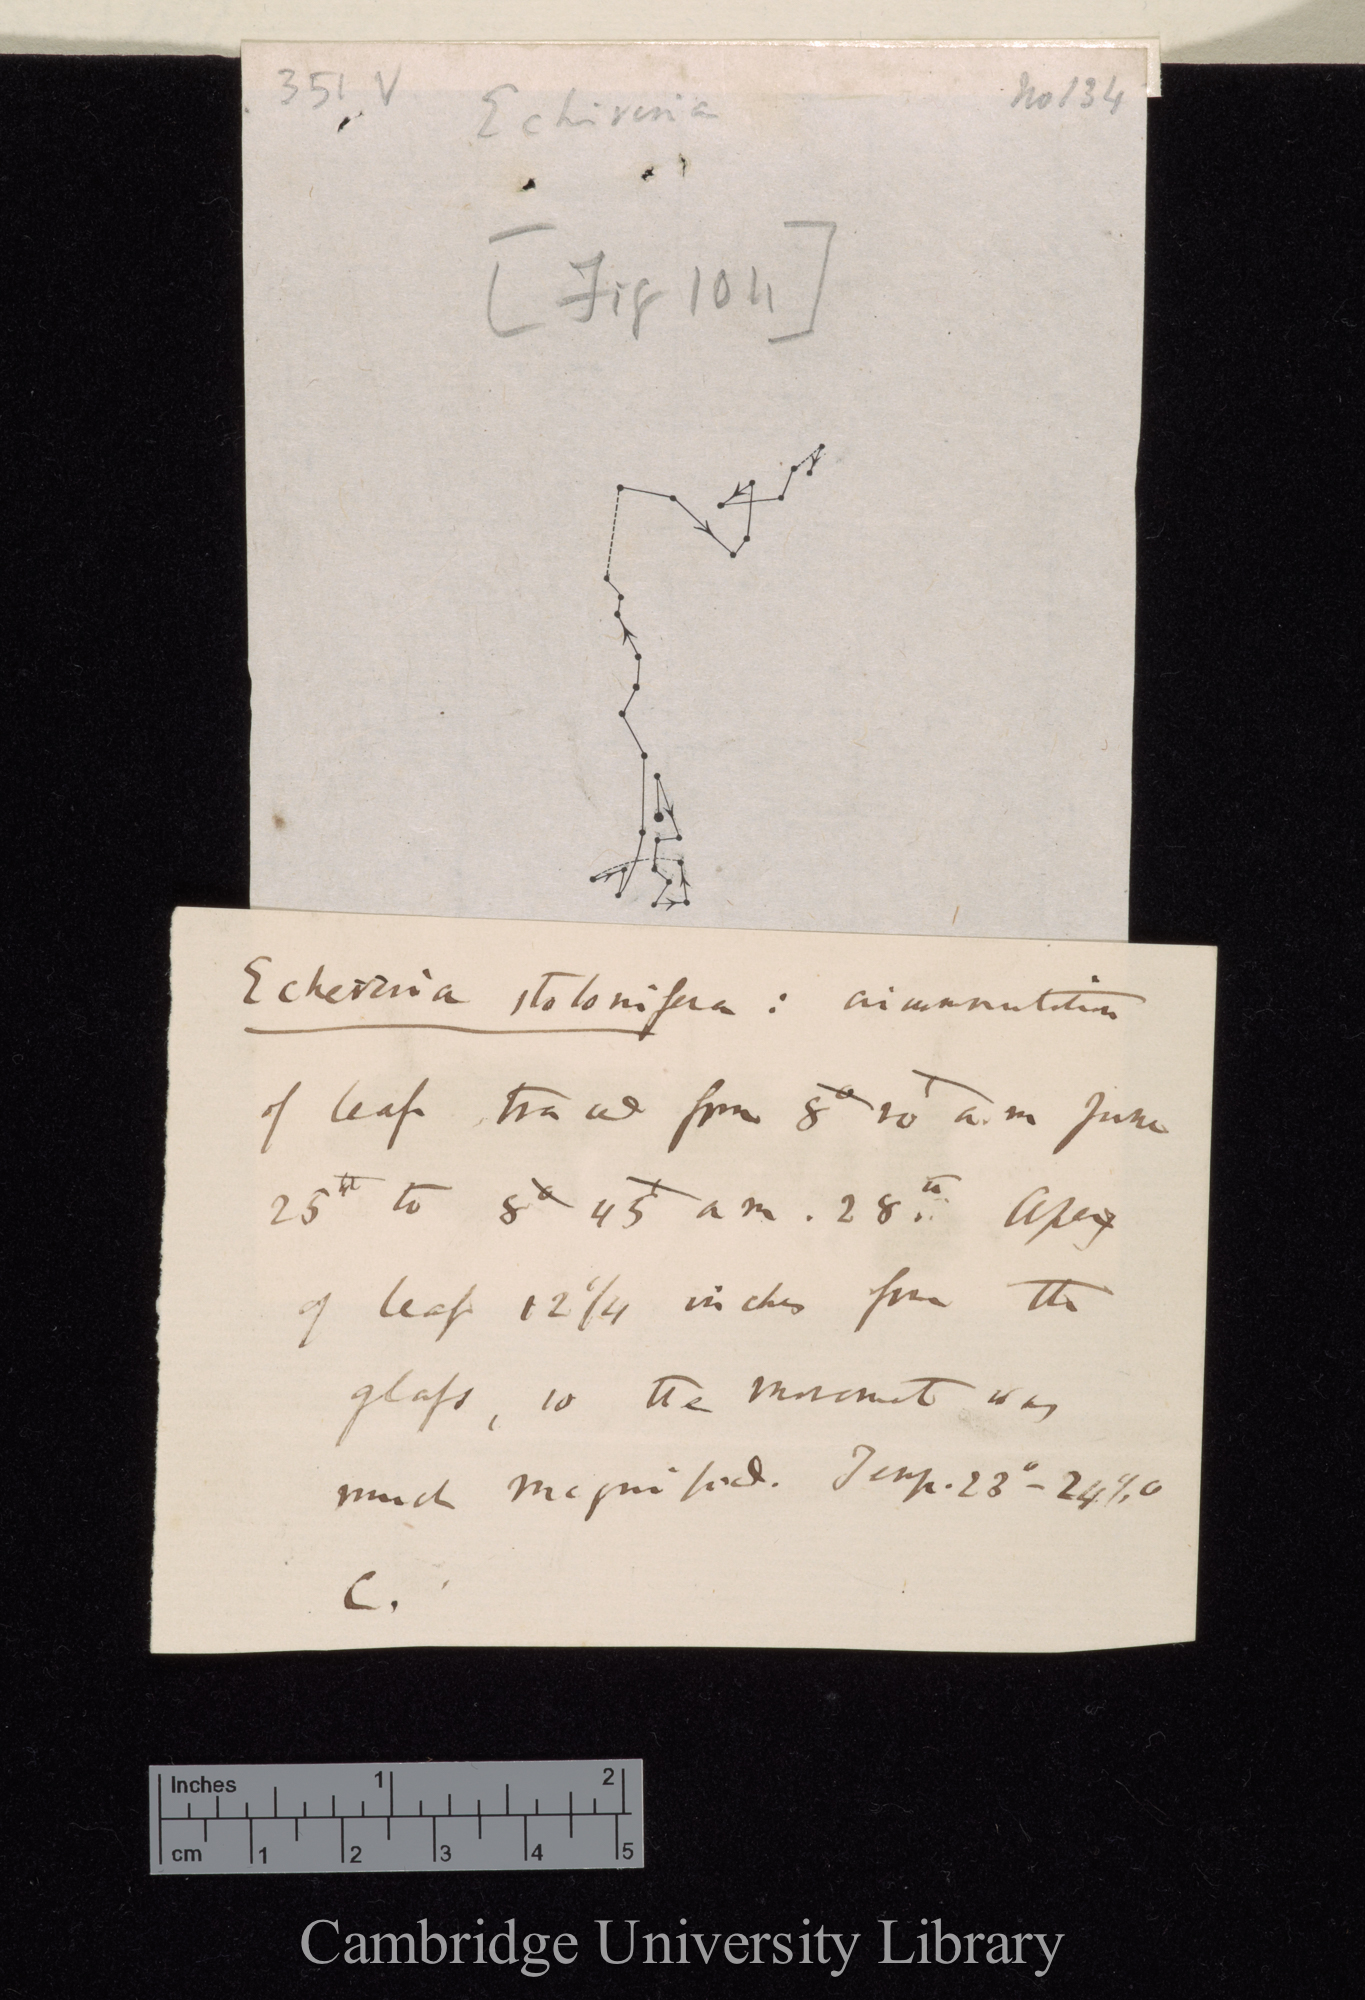 351 V
Echeveria
No 134
[Fig 104]
Echeveria stolonifera: circumnutation
of leaf traced from 8° 20' a.m June
25th to 8° 45' a m. 28th Apex
of leaf 12 1/4 inches from the
glass, so the movement was
much magnified. Temp. 23° – 24 1/2°
C.
Inches 1 2
cm 1 2 3 4 5
Cambridge University Library